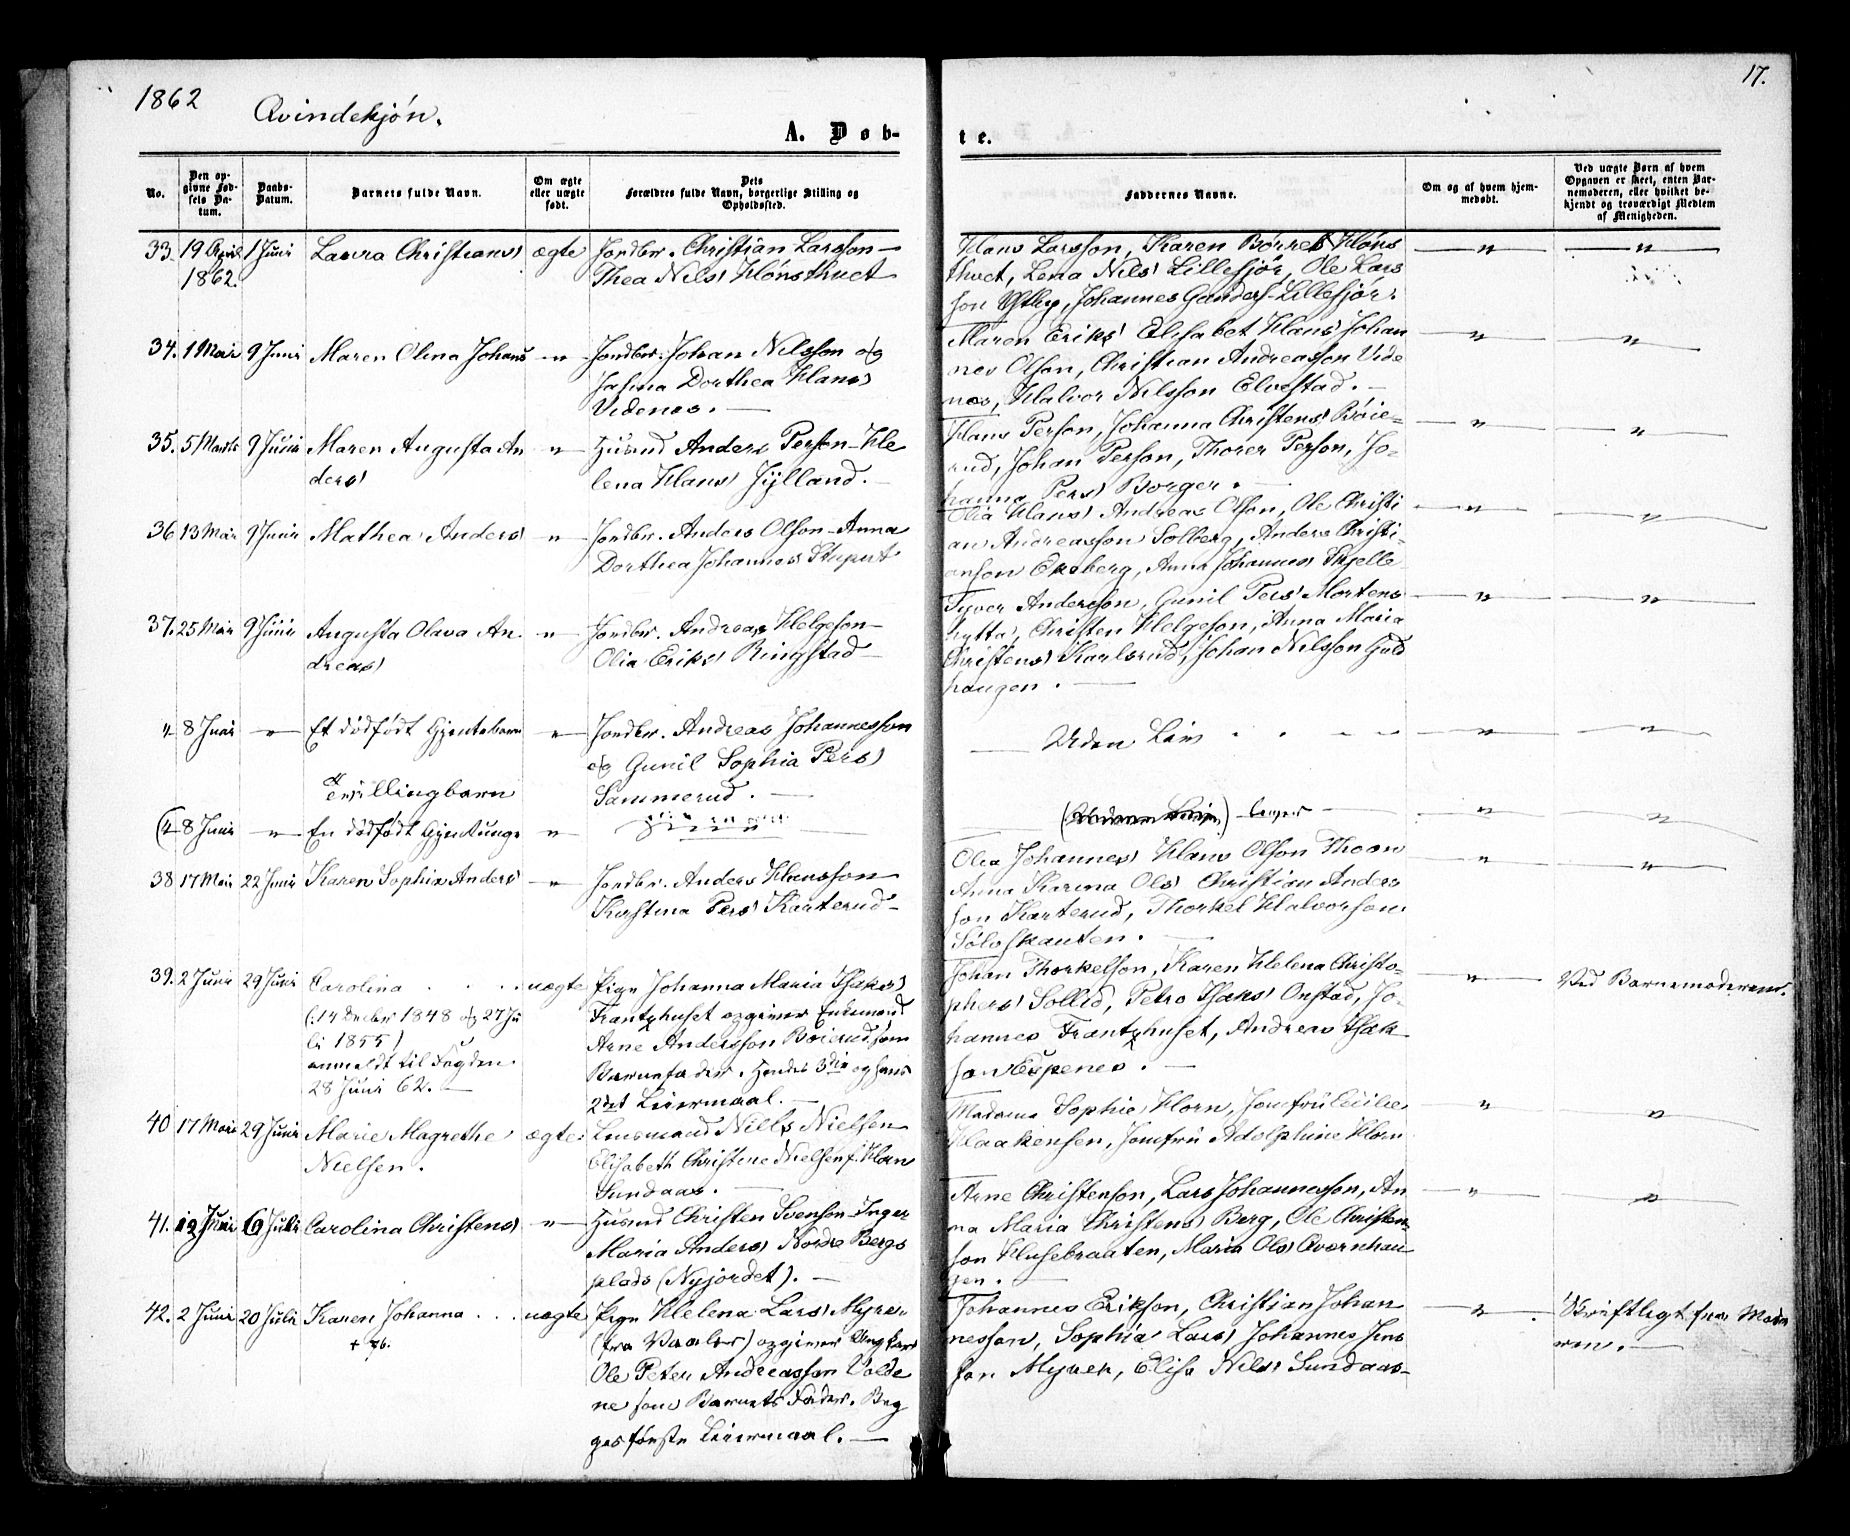 1862
Qvindekjön.
17.
A. Døb-
te.
No.
Den op-
givne Fød-
sels Da-
tum.
Daabs-
Datum.
Barnets fulde Navn.
Om ægte
eller uægte
født.
Dets
Forældres fulde Navn, borgerlige Stilling og
Opholdssted.
Faddernes Navne.
Om og af hvem hjem-
medøbt.
Ved uægte Børn af hvem
Opgaven er skeet, enten Bar-
nemoderen, eller hvilket be-
kjendt og troværdigt Medlem
af Menigheden.
33. 19 April 1 Juni Laura Christians) ægte Jordbr. Christian Larsson-
1862. Thea Nils) Hönsthvet
Hans Larsson, Karen Börres) Höns
thvet, Lena Nils) Lillesjör, Ole Lars
son Ystby, Johannes Gunders) Lillesjör.
34. 1 Mai 9 Juni Maren Olina Johans) -"- Jordbr. Johan Nilsson og
Dorthea Hans)
Videnes. -
Maren Eriks) Elisabet Hans) Johan
nes Olson, Christian Andreasson Vide
nes, Halvor Nilsson Elvestad. -
35. 5 9 Juni Maren Augusta An -"- Husmd Anders Person-Hele
ders) lena Hans) Jylland. -
Hans Person, Johanna Christens) Böie-
rud, Johan Person, Thorer Person, Jo-
hanna Pers) Borger. -
36 13 Mai 9 Juni Mathea Anders) -"- Jordbr. Anders Olson-Anna
Dorthea Johannes)
Olia Hans) Andreas Olson, Ole Christi
an Andreasson Solberg, Anders Christi-
anson Ekeberg, Anna Johannes) Skjelle
37. 25 Mai 9 Juni Augusta Olava An- -"- Jordbr. Andreas Helgeson-
dreas) Olia Eriks) Ringstad-
Syver Anderson, Gunil Pers) Mortens
hytta, Christen Helgeson, Anna Maria
Christens) Karlsrud, Johan Nilsson Guld
haugen. -
" 8 Juni -"- Et dödfödt Gjentebarn -"- Jordbr. Andreas Johannesson
og Gunil Sophia Pers)
Tvillingbarn Sammerud. -
Uden Liv
(" 8 Juni -"- En dödfödt "
38 17 Mai 22 Juni Karen Sophia Anders) -"- Jordbr. Anders Hansson
Kirstina Pers) Karterud-
Olia Johannes) Hans Olson Thoen
Anna Karina Ols) Christian Anders
son Karterud, Thorkel Halvorson
Sölvskauten. -
39. 2 Juni 29 Juni Carolina . . . uægte Pige Johanna Maria Isaks)
(: 14 Decbr 1848 og 27 Ju Frantzhuset opgiver Enkemand
li 1855) Arne Andersson Böierud som
anmeldt til Fogden Barnefader. Hendes 3die og hans
28 Juni 62. - 2det Leiermaal. -
Johan Thorkelson, Karen Helena Christo-
phers) Sollid, Petro Isaks) Onstad, Jo-
hannes Frantzhuset, Andreas Isak
son Espenes. -
Ved Barnemoderen.
40 17 Mai 29 Juni Marie Magrethe ægte Lensmand Nills Nielsen
Nielsen. Elisabeth Christine Nielsen f. Horn
Sundaas. -
Madame Sophie Horn, Jomfru Cecilie
Haakensen, Jomfru Adolphine Horn
41. 12 Juni 6 Juli Carolina Christens) -"- Husmd Christen Svenson-Inger
Maria Anders) Nordre Bergs
plads (Nyjordet). -
Arne Christenson, Lars Johannesson, An
na Maria Christens) Berg, Ole Christen-
son Husebraaten, Maria Ols) Qvernhau
gen. -
42. 2 Juni 20 Juli Karen Johanna . . . uægte Pige Helena Lars) Myre-
(fra Vaaler) opgiver Ungkarl
Ole Peter Andreasson Volde
ne som Barnets Fader. Beg
ges förste Leiermaal. -
Johannes Erikson, Christian Johan
nesson, Sophia Lars) Johannes Jens
son Myrer, Elise Nils) Sundaas-
Skriftligt fra Mode
ren. -